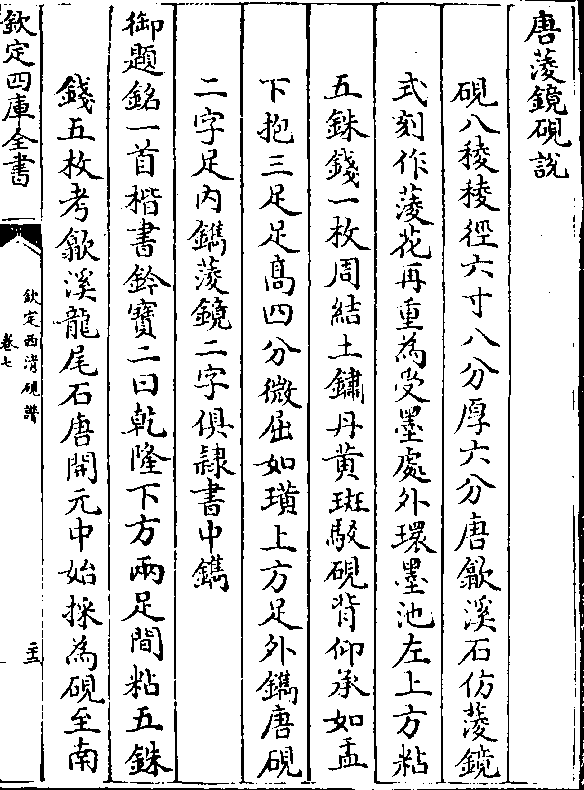 唐蔆鏡硯說
硯八稜稜徑六寸八分厚六分唐歙溪石仿蔆鏡
式刻作蔆花再重為受墨處外環墨池左上方粘
五銖錢一枚周結土鏽丹黄斑駁硯背仰承如盂
下抱三足足髙四分微屈如璜上方足外鐫唐硯
二字足内鐫蔆鏡二字俱隷書中鐫
御題銘一首楷書鈐寶二曰乾隆下方兩足間粘五銖
錢五枚考歙溪龍尾石唐開元中始採為硯至南
欽定四庫全書
欽定西清硯譜
卷七
二十五